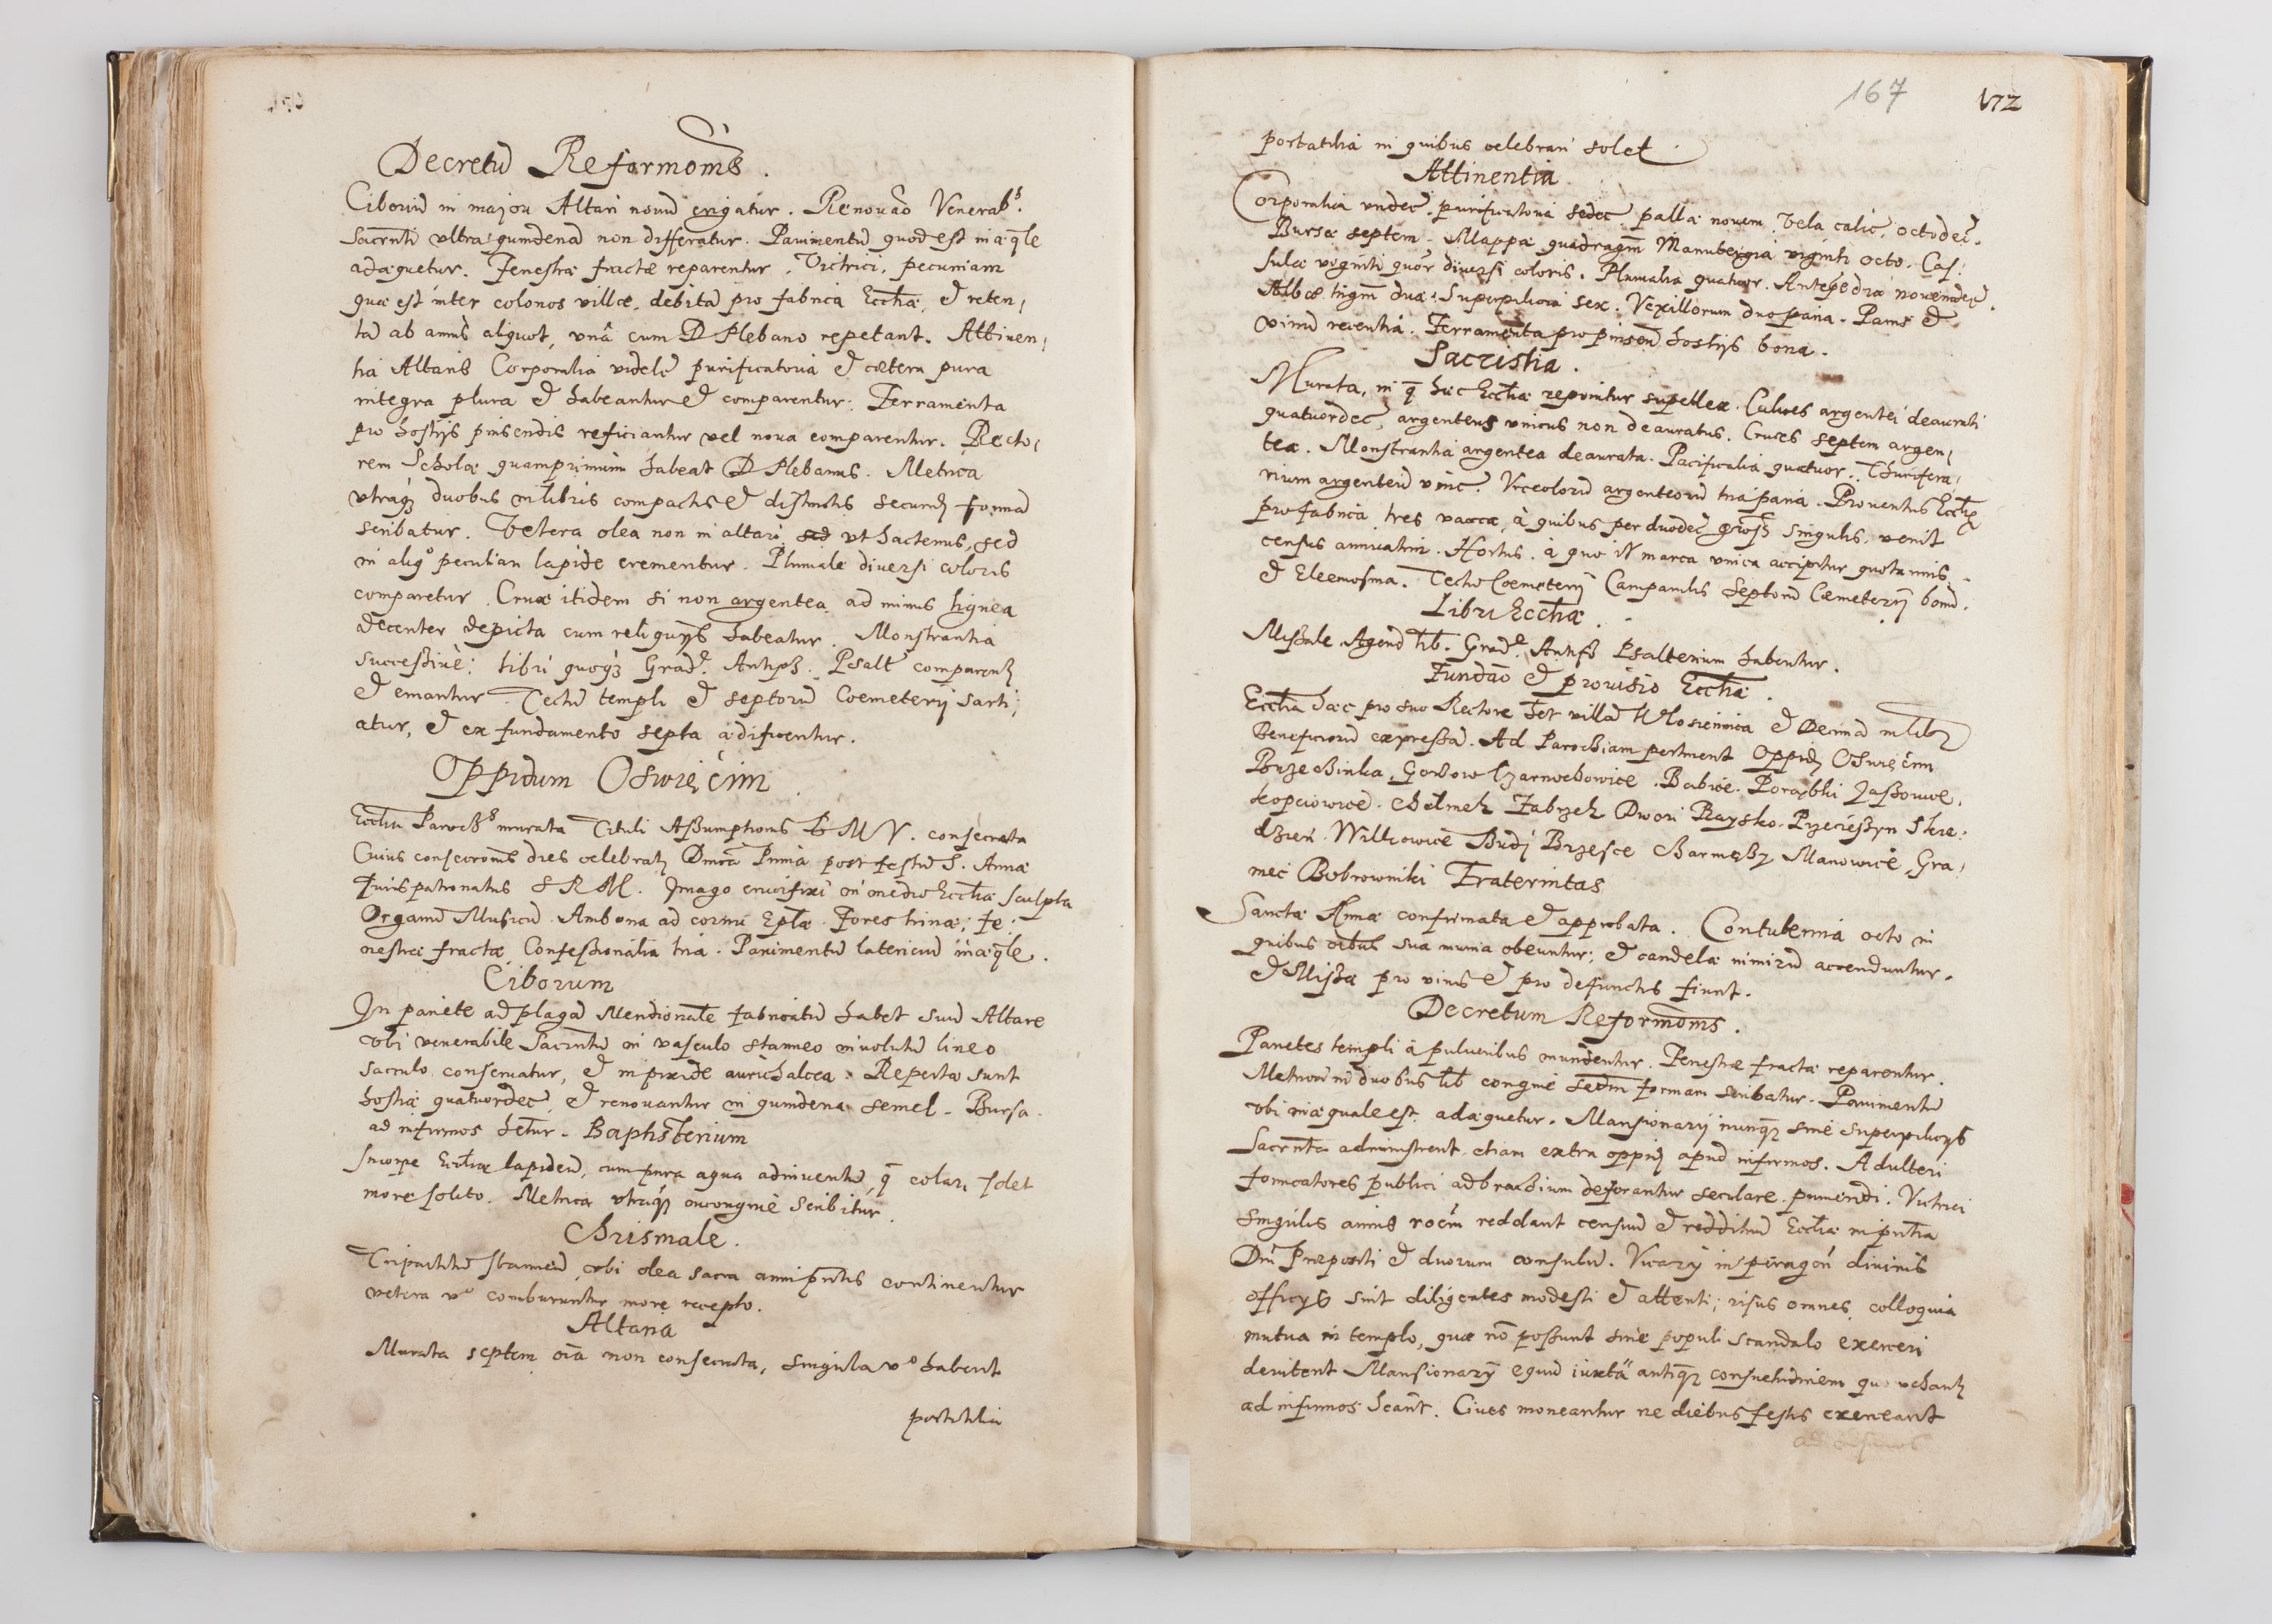 Decretũ Reformoñis.
Ciboriũ in majori Altari nouũ erigatur. Renouaõ Venerab:
Sacrm̃ti ultra quindenã non differatur. Pauimentũ quod est inæq̃le
adæquetur. Fenestræ fractæ reparentur. Victrici, pecuniam
quæ est inter colonos villæ, debitã pro fabrica Eccl̃iæ, et reten,
tã ab annis aliquot, unâ cum D Plebano repetant. Attinen,
tia Altaris Corporalia videlꝫ purificatoria et cætera pura
integra plura et habeantur et comparentur. Ferramenta
pro hostijs pinsendis reficiantur vel noua comparentur. Recto,
rem Scholæ quamprimum habeat D Plebanus. Metrica
utraqꝫ duobus in libris compactis et distinctis secundꝫ formã
scribatur. Vetera olea non in altari ut hactenus, sed
in aliqo peculiari lapide crementur. Pluuiale diuersi coloris
comparetur. Crux itidem si non argentea, ad minus lignea
decenter depicta cum reliquijs habeatur. Monstrantia
successiuè: libri quoqꝫ Grad: Antiph. Psalt comparentꝫ
et emantur. Tectũ templi et septorũ Coemeterij sarti,
atur, et ex fundamento septa ædificentur.
Oppidum Oswięcim.
Eccl̃ia Paroch murata Tituli Assumptionis B M V. consecrata
Cuius consecrom̃is dies celebratꝫ Dm̃ca Prima post festũ S. Annæ
Iuris patronatus S R M. Imago crucifixi in medio Eccl̃iæ sculpta
Organũ Musicũ. Ambona ad cornu Epl̃æ. Fores trinæ; fe:
nestræ fractæ. Confessionalia tria. Pauimentũ latericiũ inæq̃le.
Ciborum
In pariete ad plagã Meridional̃e fabricatũ habet suũ Altare
ubi venerabile Sacrm̃tũ in vasculo stanneo inuolutũ lineo
sacculo conseruatur, et in pixide aurichalcea. Repertæ sunt
hostiæ quatuordecꝫ, et renouantur in quindena semel. Bursa
ad infirmos hētur. Baptisterium
In corpe Eccl̃iæ lapideũ, cum pura aqua adinuentũ, q̃ colari solet
more solito. Metrica utraqꝫ incongruè scribitur.
Chrismale.
Tripartitũ stanneũ, ubi olea sacra anni p̃ntis continentur
vetera vo comburuntur more recepto.
Altaria
Murata septem oĩa non consecrata, singula vo habent
portatilia
167 172
portatilia in quibus celebrari solet.
Attinentia
Corporalia undecꝫ. purificatoria sedecꝫ pallæ nouem. Vela calic. octodecꝫ.
Bursæ septem. Mappæ quadragm̃ Manutergia viginti octo. Cas:
sulæ viginti quõr diuersi coloris. Pluuialia quatuor. Antepedia nouemdecꝫ.
Albæ trigm̃ duæ. Superpilicia sex. Vexillorum duo paria. Panis et
vinũ recentia. Ferramenta pro pinsen̄ hostijs bona.
Sacristia.
Murata, in q̃ hæc Eccl̃iæ reponitur supellex. Calices argentei deaurati
quatuordecꝫ, argenteus unicus non deauratus. Cruces septem argen,
teæ. Monstrantia argentea deaurata. Pacificalia quatuor. Thurifera,
rium argenteũ unic. Vrceolorũ argenteorũ tria paria. Prouentus Eccl̃iæ
pro fabrica, tres vaccæ, à quibus per duodecꝫ gross singulis, venit
census annuatim. Hortus. à quo N marca unica accipitur quotannis,
et Eleemosina. Tectũ Coemeterij Campanilis Septorũ Cæmeterij bonũ.
Libri Eccl̃iæ.
Missale Agend lib. Grad: Antiph Psalterium habentur.
Fundaõ et prouisio Eccl̃iæ.
Eccl̃ia hæc pro suo Rectore het villã Włosienica et Decimã in lib
Beneficiorũ expressã. Ad Parochiam pertinent Oppidꝫ Oswięcim
Brzezinka, Gorzow Czarnochowice. Babice. Porąbki Jassowice,
kopciowice. Chełmek Zabrzek Dwori Raysko. Przecieszyn Skie:
dzień Wilkowice Budÿ Brzesce Charmęzy Manowice, Gra,
miec Bobrowniki Fraternitas
Sanctæ Annæ confirmata et approbata. Contubernia octo in
quibus om̃ibus sua munia obeuntur; et candelæ nimirũ accenduntur.
et Missæ pro viuis et pro defunctis fiunt.
Decretum Reformoñis.
Parietes templi à puluеribus mundentur. Fenestræ fractæ reparentur.
Metricæ in duobus lib̃ congruè secdm̃ formam scribatur. Pauimentũ
ubi inæquale est adæquetur. Mansionarij nunqꝫ sine superpilicijs
Sacrm̃ta administrent. etiam extra oppidꝫ apud infirmos. Adulteri
fornicatores publici ad brachium deferantur seculare puniendi. Victrici
singulis annis roẽm reddant censuũ et reddituũ Eccl̃iæ in p̃ntia
Dñi Præpositi et duorum consulũ. Vicarij in peragen̄ diuinis
officijs sint diligentes modesti et attenti; risus omnes, colloquia
mutua in templo, quæ nõ possunt sine populi scandalo exerceri
deuitent Mansionarij equũ iuxta antiqꝫ consuetudinem quo vehantꝫ
ad infirmos heãnt. Ciues moneantur ne diebus festis exerceant